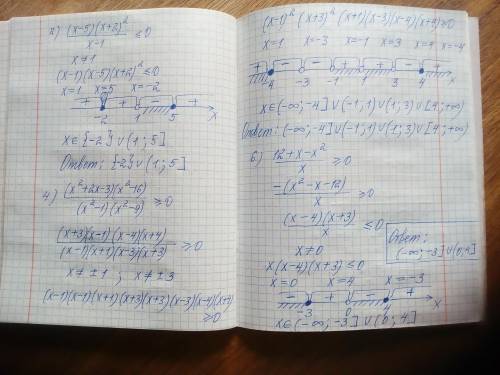 2) (x-5)(x+2)² / x-1 ≤ 0
x≠1
(x-1)(x-5)(x+2)² ≤ 0
x=1 x=5 x=-2
+ + - +
-2 1 5 x
x∈{-2}∪(1;5]
Ответ: {-2}∪(1;5]
4) (x²+2x-3)(x²-16) / (x²-1)(x²-9) ≥ 0
(x+3)(x-1)(x-4)(x+4) / (x-1)(x+1)(x-3)(x+3) ≥ 0
x≠±1; x≠±3
(x-1)(x-1)(x+1)(x+3)(x+3)(x-3)(x-4)(x+4)
≥0
(x-1)²(x+3)²(x+1)(x-3)(x-4)(x+4)≥0
x=1 x=-3 x=-1 x=3 x=4 x=-4
+ - - + + - +
-4 -3 -1 1 3 4 x
x∈(-∞;-4]∪(-1;1)∪(1;3)∪[4;+∞)
Ответ: (-∞;-4]∪(-1;1)∪(1;3)∪[4;+∞)
6) 12+x-x² / x ≥ 0
-(x²-x-12) / x ≥ 0
(x-4)(x+3) / x ≤ 0
x≠0
x(x-4)(x+3)≤0
x=0 x=4 x=-3
- + - +
-3 0 4 x
x∈(-∞;-3]∪(0;4]
Ответ:
(-∞;-3]∪(0;4]